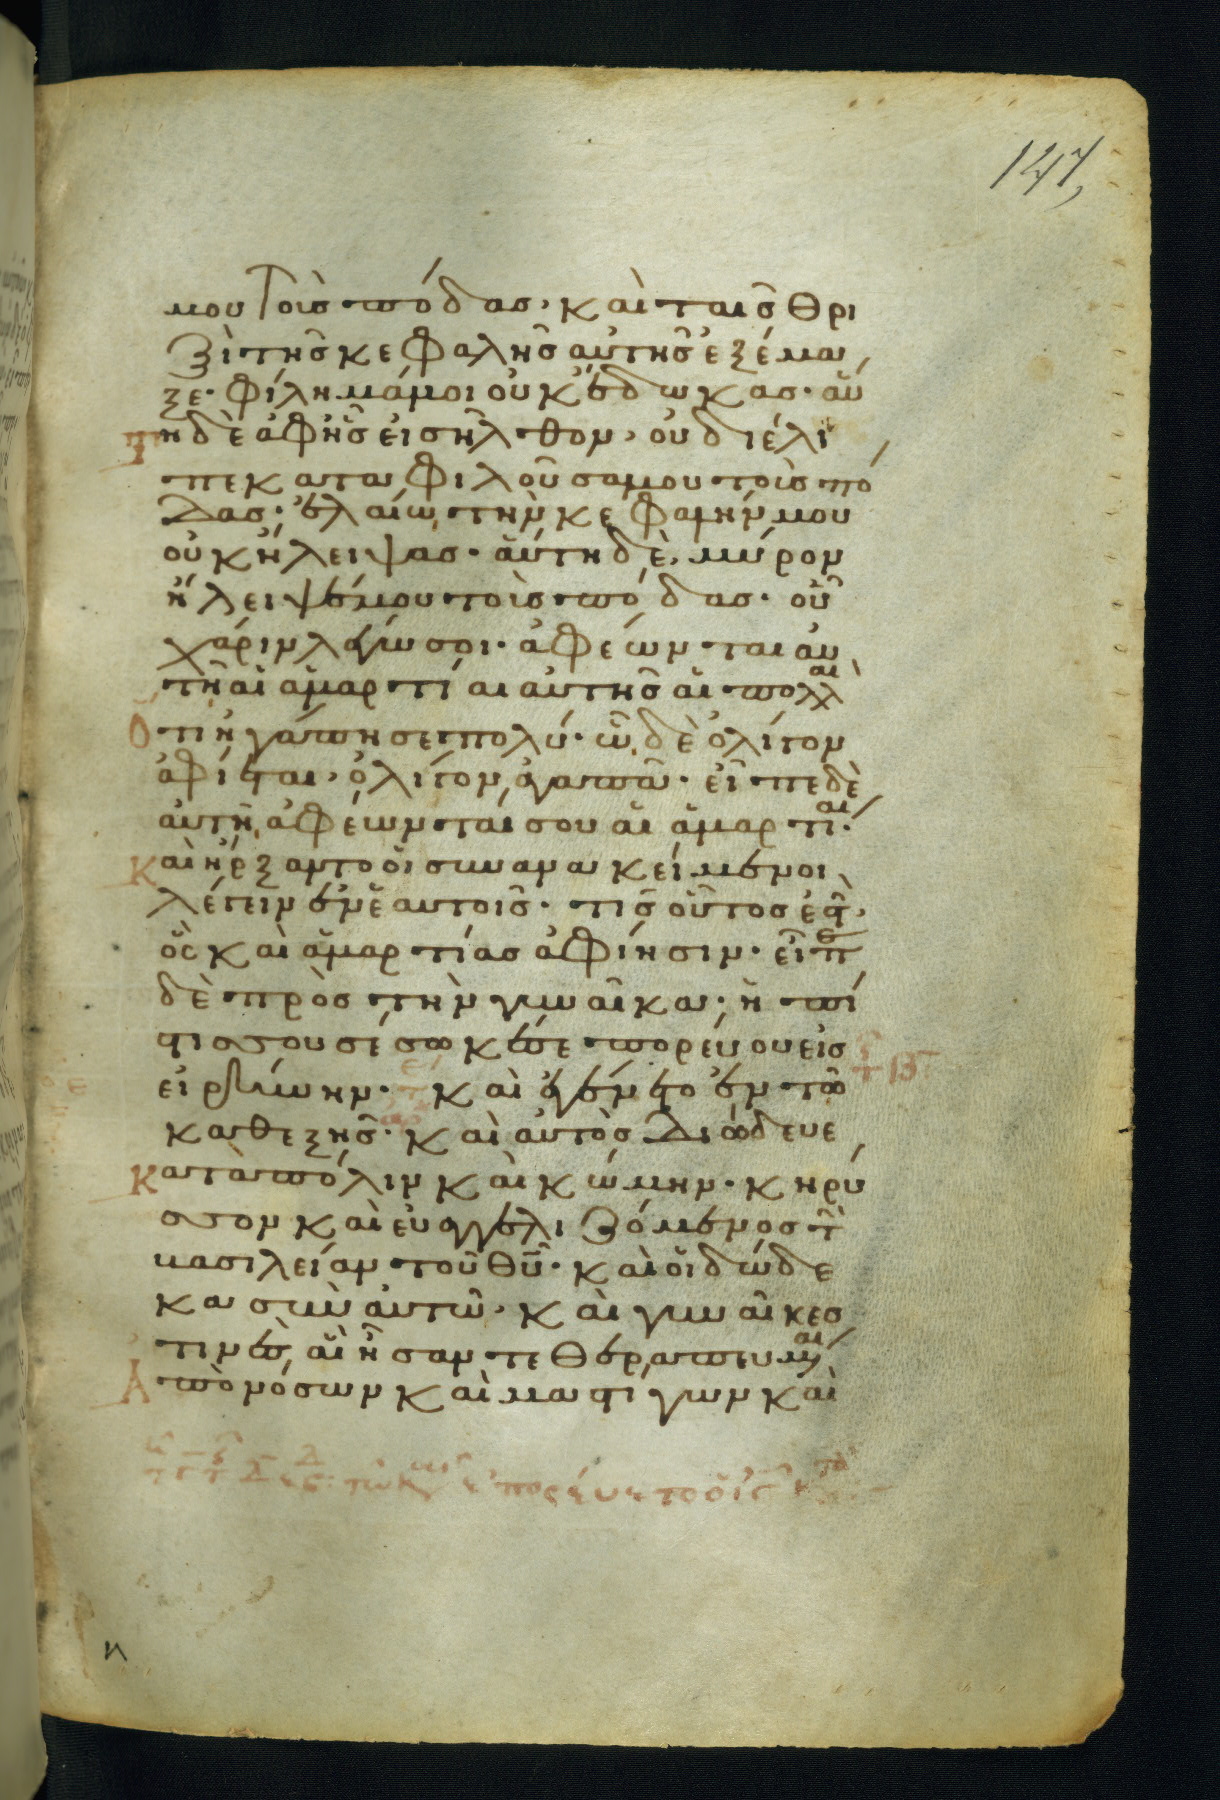 147,
μου τοὺς πόδας· καὶ ταῖς θρι
ξὶ τῆς κεφαλῆς αὐτῆς ἐξέμα
ξε· φίλημά μοι οὐκ ἔδωκας· αὕ
τη δὲ ἀφ' ἧς εἰσῆλθον, οὐ διέλι
πε καταφιλοῦσα μου τοὺς πό
δας· ἐλαίω τὴν κεφαλήν μου
οὐκ ἤλειψας· αὕτη δὲ μύρον
ἤλειψέ μου τοὺς πόδας· οὗ
χάριν λέγω σοι· ἀφέωνται αὐ
τῆ αἱ ἁμαρτίαι αὐτῆς αἱ πολλαί
Ὅτι ἠγάπησε πολύ· ὧ δὲ ὀλίγον
ἀφίεται, ὀλίγον ἀγαπᾶ· εἶπε δὲ
αὐτῆ, ἀφέωνταί σου αἱ ἁμαρτίαι·
Καὶ ἤρξαντο οἱ συνανακείμενοι
λέγειν ἐν ἑαυτοῖς· τίς οὗτος ἐστ
ὃς καὶ ἁμαρτίας ἀφίησιν· εἶπε
δὲ πρὸς τὴν γυναῖκα· ἡ πί
στις σου σέσωκέ σε πορεύου εἰς
εἰρήνην· καὶ ἐγένετο ἐν τῶ
καθεξῆς· καὶ αὐτὸς διώδευε
Κατὰ πόλιν καὶ κώμην· κηρύ
σσων καὶ εὐαγγελιζόμενος τὴν
βασιλείαν τοῦ θυ· καὶ οἱ δώδε
κα σὺν αὐτῶ· καὶ γυναῖκες
τινές, αἳ ἦσαν τεθεραπευμέναι
Ἀπὸ νόσων καὶ μαστίγων καὶ
τῶ καιρῶ ἐπορεύετο ὁ ις